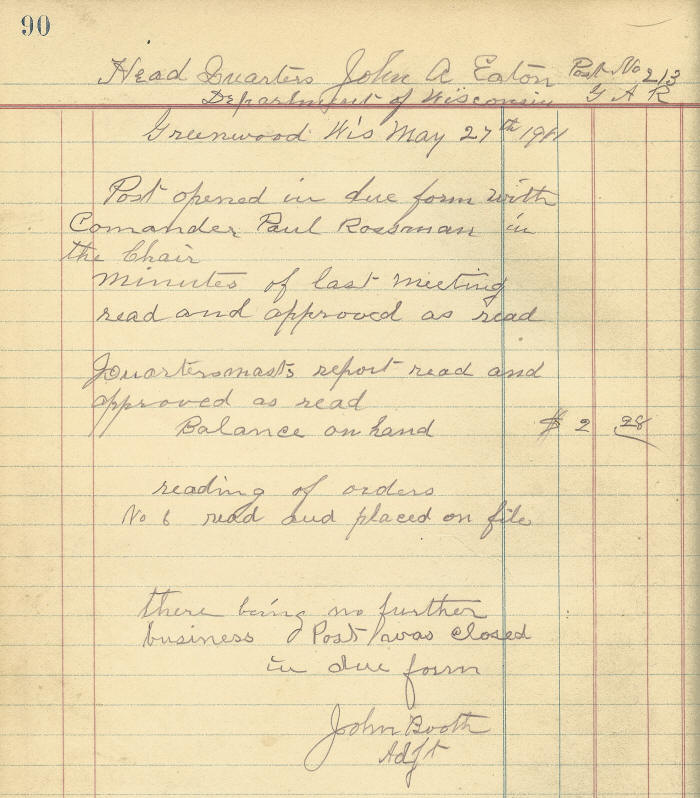 90
Head Quarters John A Eaton Post No 213
Department of Wisconsin G A R
Greenwood Wis May 27th 1911
Post opened in due form with
Comander Paul Rossman in
the Chair
minutes of last meeting
read and approved as read
Quartersmasts report read and
approved as read
Balance on hand $ 2 28
reading of orders
No 6 read and placed on file
there being no further
business Post was closed
in due form
John Booth
Adjt